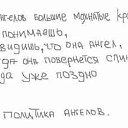 нгелов большие мохнатые кр
понимаешь,
видишь, что она ангел,
да она повернется спин
да уже поздно
политика ангелов.